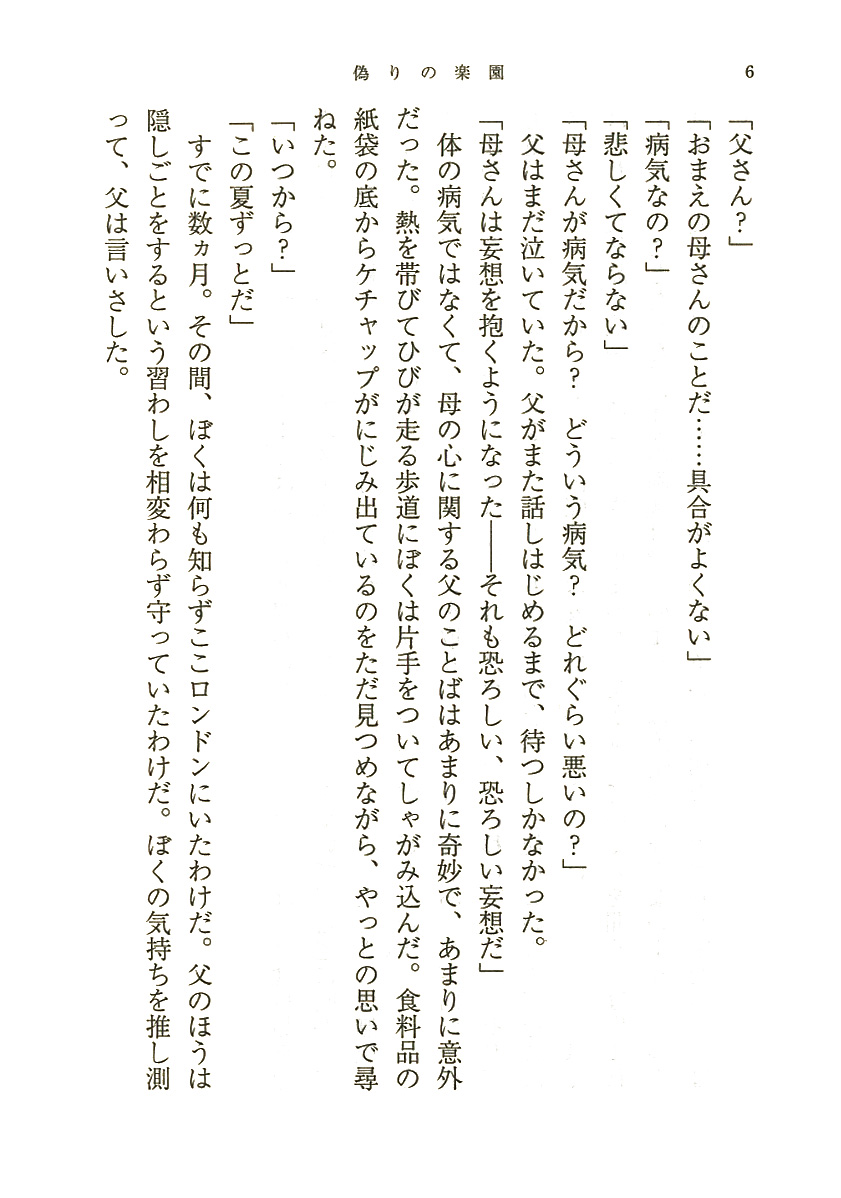 偽りの楽園
6
「父さん？」
「おまえの母さんのことだ……具合がよくない」
「病気なの？」
「悲しくてならない」
「母さんが病気だから？　どういう病気？　どれぐらい悪いの？」
　父はまだ泣いていた。父がまた話しはじめるまで、待つしかなかった。
「母さんは妄想を抱くようになった――それも恐ろしい、恐ろしい妄想だ」
　体の病気ではなくて、母の心に関する父のことばはあまりに奇妙で、あまりに意外
だった。熱を帯びてひびが走る歩道にぼくは片手をついてしゃがみ込んだ。食料品の
紙袋の底からケチャップがにじみ出ているのをただ見つめながら、やっとの思いで尋
ねた。
「いつから？」
「この夏ずっとだ」
　すでに数ヵ月。その間、ぼくは何も知らずここロンドンにいたわけだ。父のほうは
隠しごとをするという習わしを相変わらず守っていたわけだ。ぼくの気持ちを推し測
って、父は言いさした。